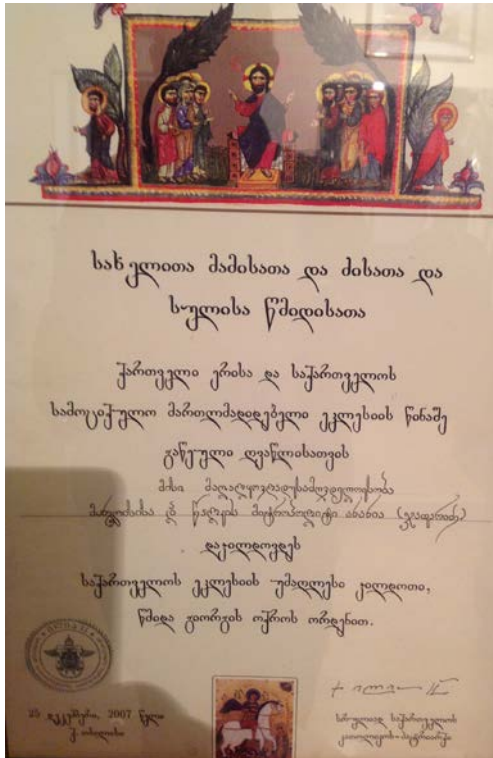 სახელითა მამისათა და ძისათა და
სულისა წმიდისათა
ქართველი ერისა და საქართველოს
სამოციქულო მართლმადიდებელი ეკლესიის წინაშე
გაწეული ღვაწლისათვის
მისი მაღალყოვლადუსამღვდელოესობა
მანგლისისა და წალკის მიტროპოლიტი ანანია (ჯაფარიძე)
დაჯილდოვდეს
საქართველოს ეკლესიის უმაღლესი ჯილდოთი,
წმიდა გიორგის ოქროს ორდენით.
25 დეკემბერი, 2007 წელი
ქ. თბილისი
სრულიად საქართველოს
კათოლიკოს-პატრიარქი